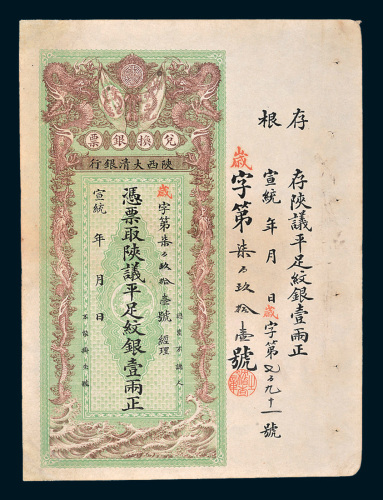 存根
存陝議平足紋銀壹兩正
宣統 年 月 日歲字第〤〥九十一號
歲字第柒百玖拾壹號
兌換銀票
陝西大清銀行
認票不認人
歲字第柒百玖拾壹號 經理
憑票取陝議平足紋銀壹兩正
宣統 年 月 日